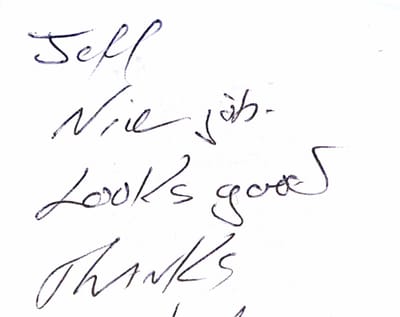 Jeff
Nice job.
Looks good
Thanks